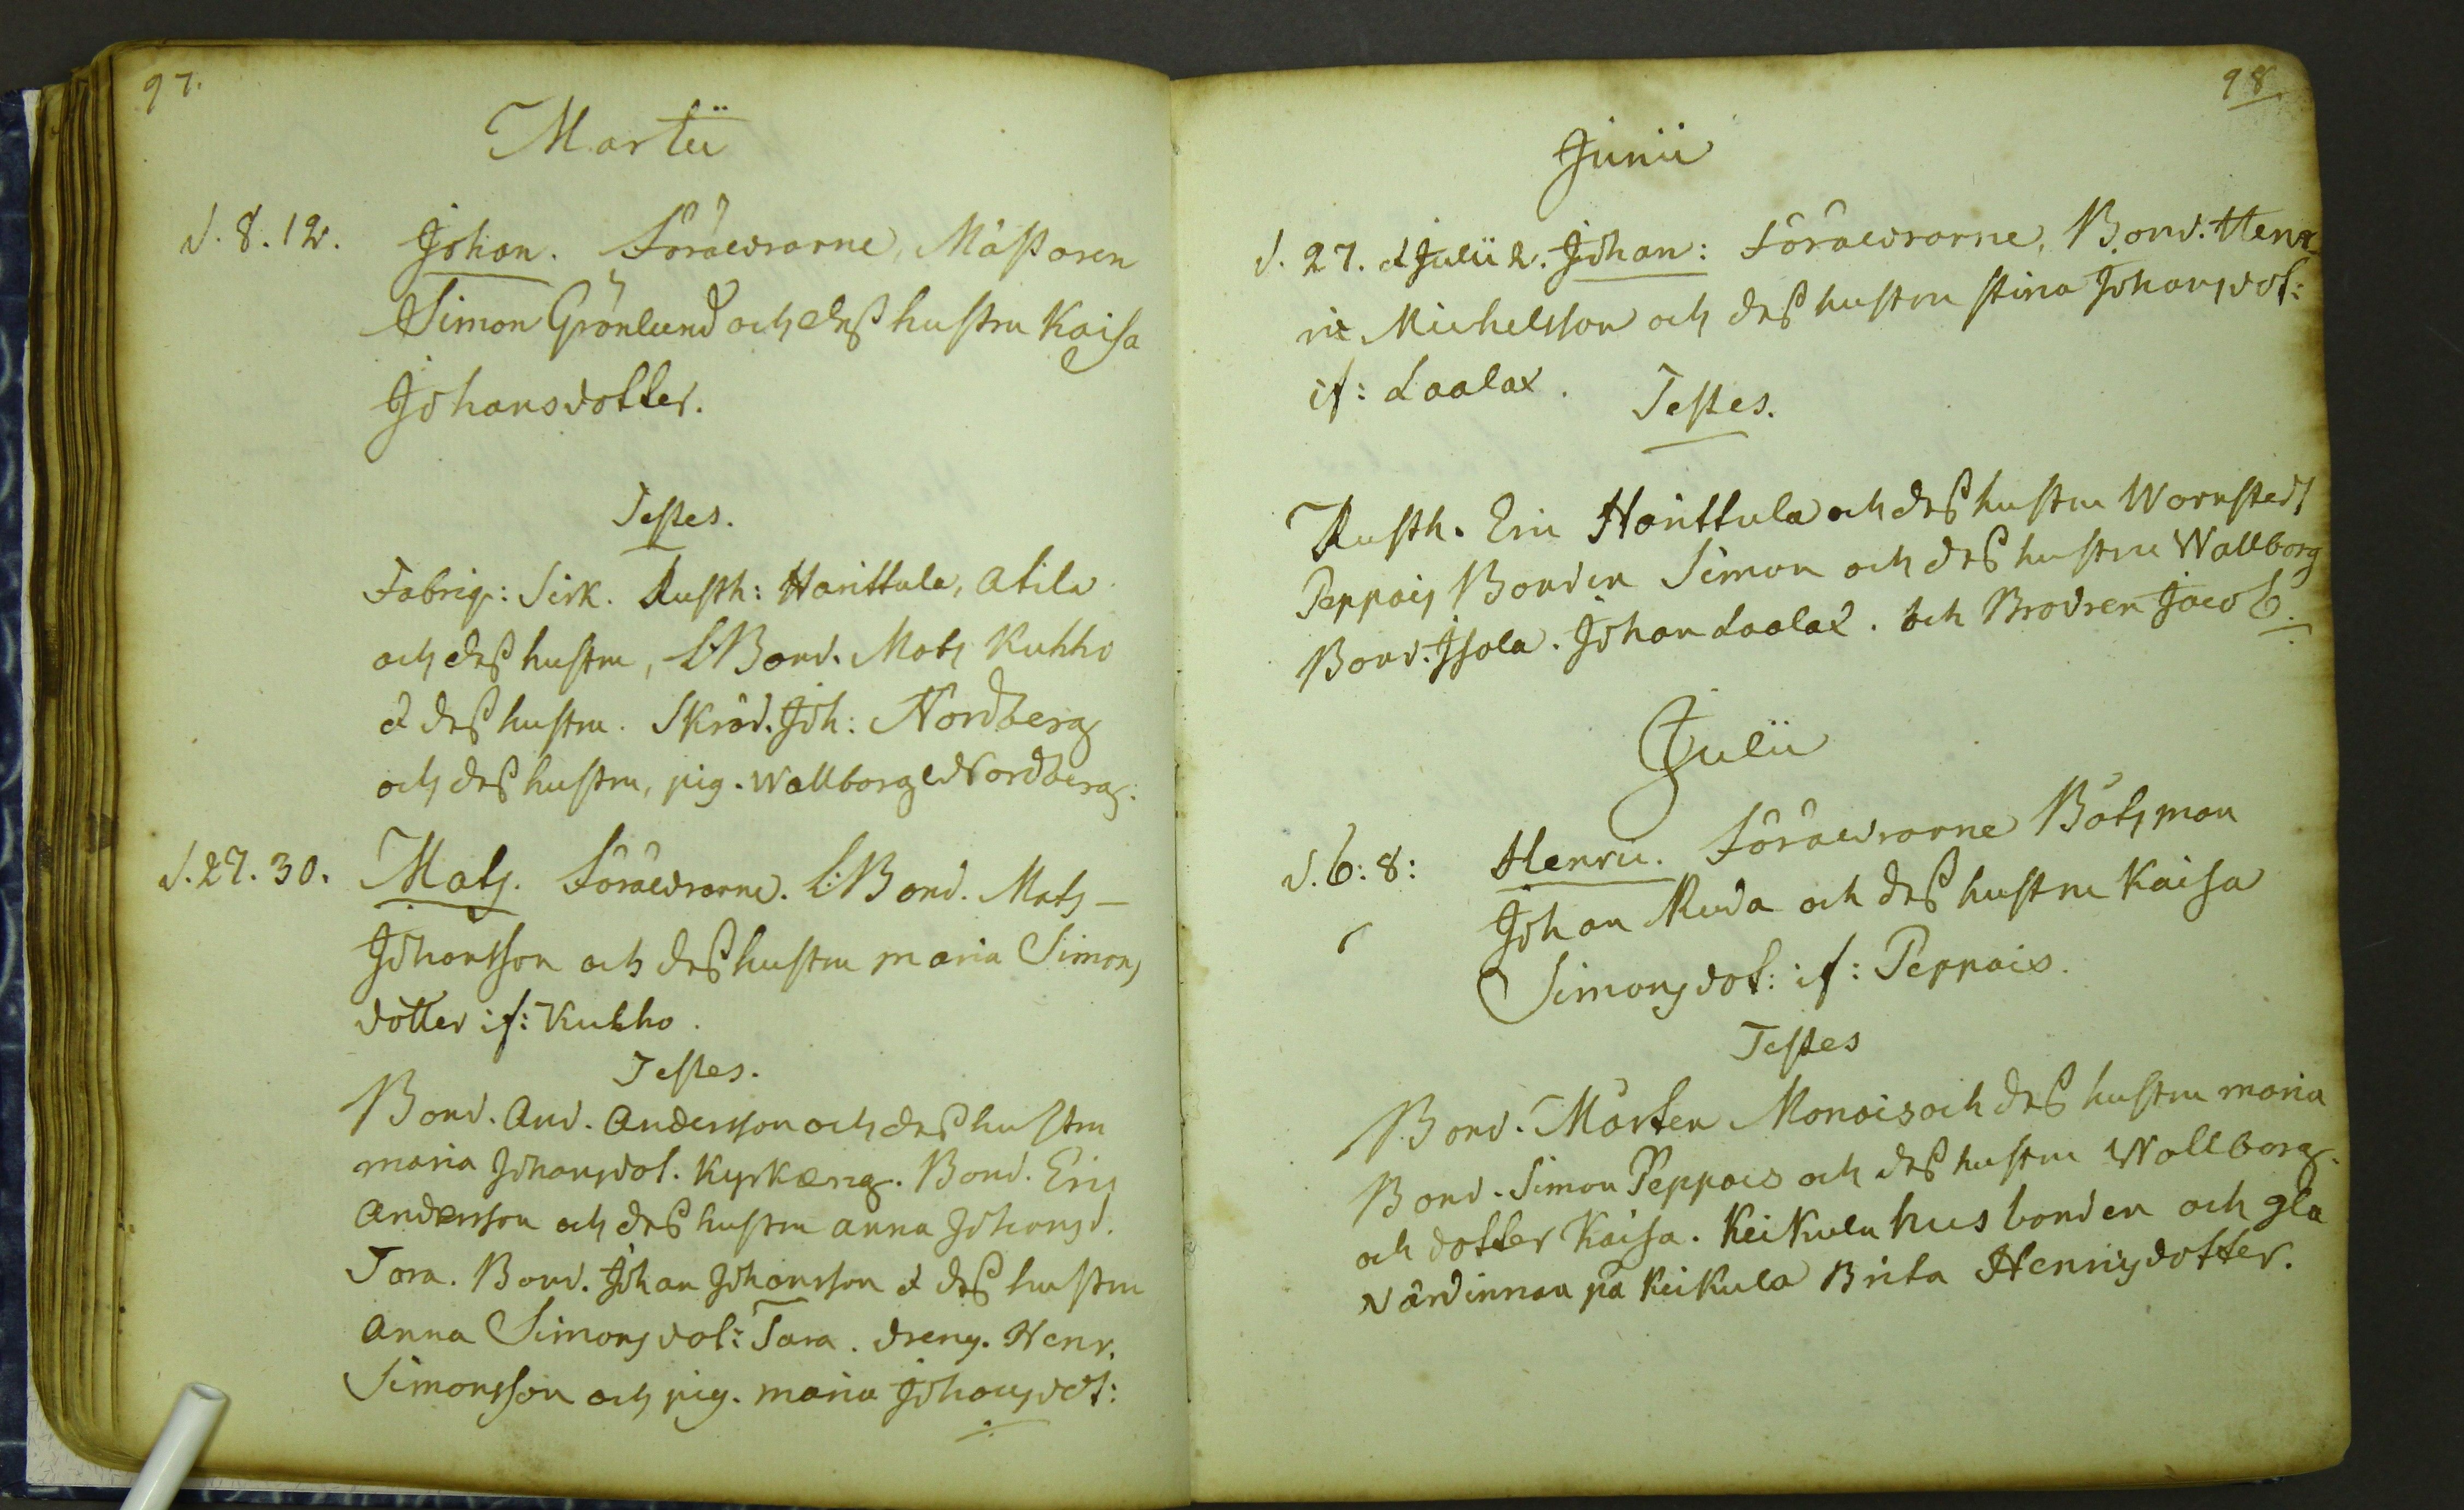 97.
Martii
d. 8. 12. Johan. Föräldrarne, Mästaren
Simon Grönlund och dess hustru Kaisa
Johansdotter.
Testes.
Fabriq: Sirk. Rusth: Harittula, Atila
och dess hustru, L:Bond. Mats Kuhho
& dess hustru. Skräd. Joh: Nordberg
och dess hustru, pig. Wallborg Nordberg.
d. 27. 30. Mats. Föräldrarne. L:Bond. Mats
Johansson och dess hustru Maria Simons
dotter if: Kukho.
Testes.
Bond. And. Andersson och dess hustru
Maria Johansdot. Kyrkæng. Bond. Eric
Andersson och dess hustru Anna Johansd.
Tara. Bond. Johan Johansson & dess hustru
Anna Simonsdot: Tara. dreng. Henr.
Simonsson och pig. Maria Johansdot:
98
Junii
d. 27. d Julii 2. Johan: Föräldrarne, Bond. Hen
ric Michelsson och dess hustru Stina Johansdot:
if: Laalax. Testes.
Rusth. Eric Harittula och dess hustru Wornstedt
Peppois Bonden Simon och dess hustru Wallborg
Bond. Isola. Johan Laalax. och Brodren Jacob.
Julii
d. 6: 8: Henric. Föräldrarne Båtsman
Johan Ruda och dess hustru Kaisa
Simonsdot: if: Peppois.
Testes
Bond. Mårten Monois och dess hustru Maria
Bond. Simon Peppois och dess hustru Wallborg.
och dotter Kaisa. Keikula husbonden och gla
Värdinnan på Keikula Brita Henricsdotter.